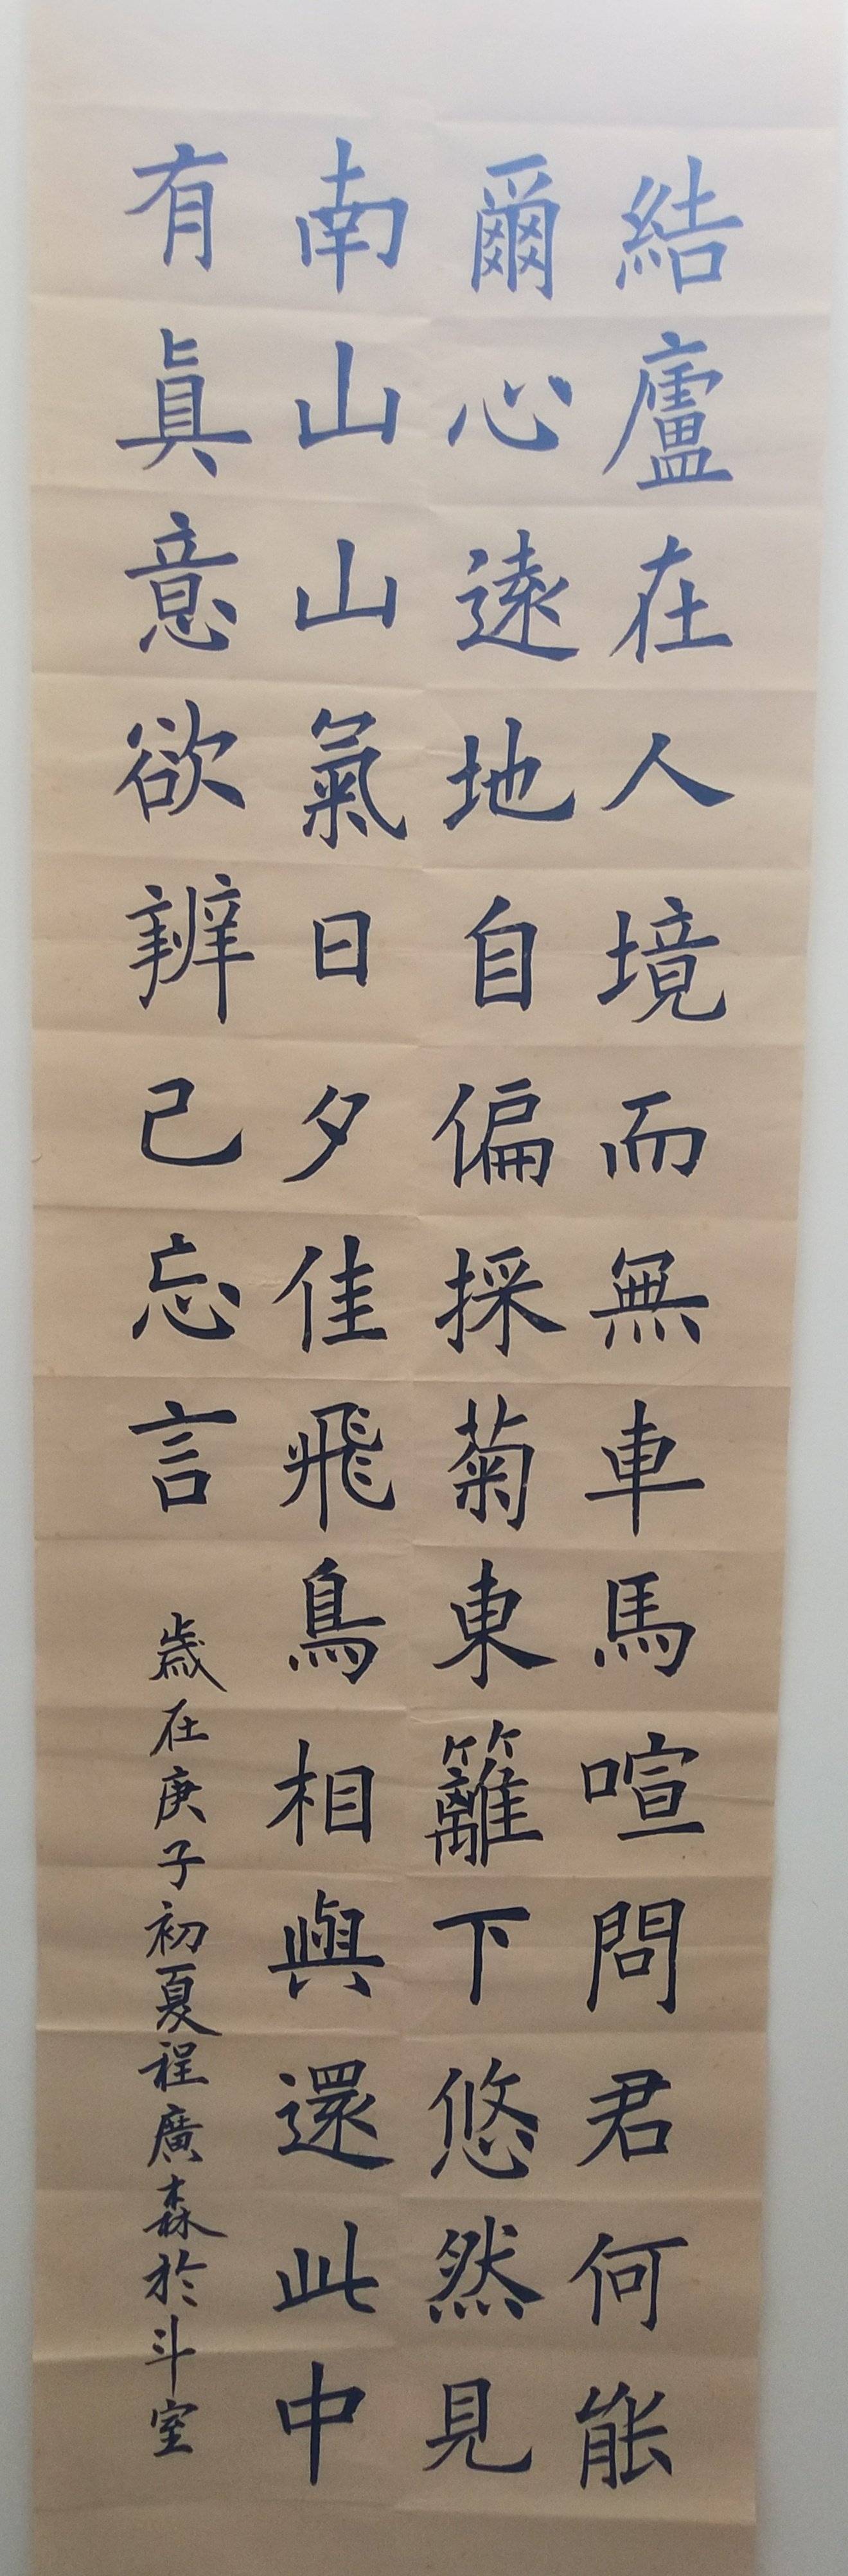 結廬在人境而無車馬喧問君何能
爾心遠地自偏採菊東籬下悠然見
南山山氣日夕佳飛鳥相與還此中
有真意欲辨己忘言
歲在庚子初夏程廣森於斗室